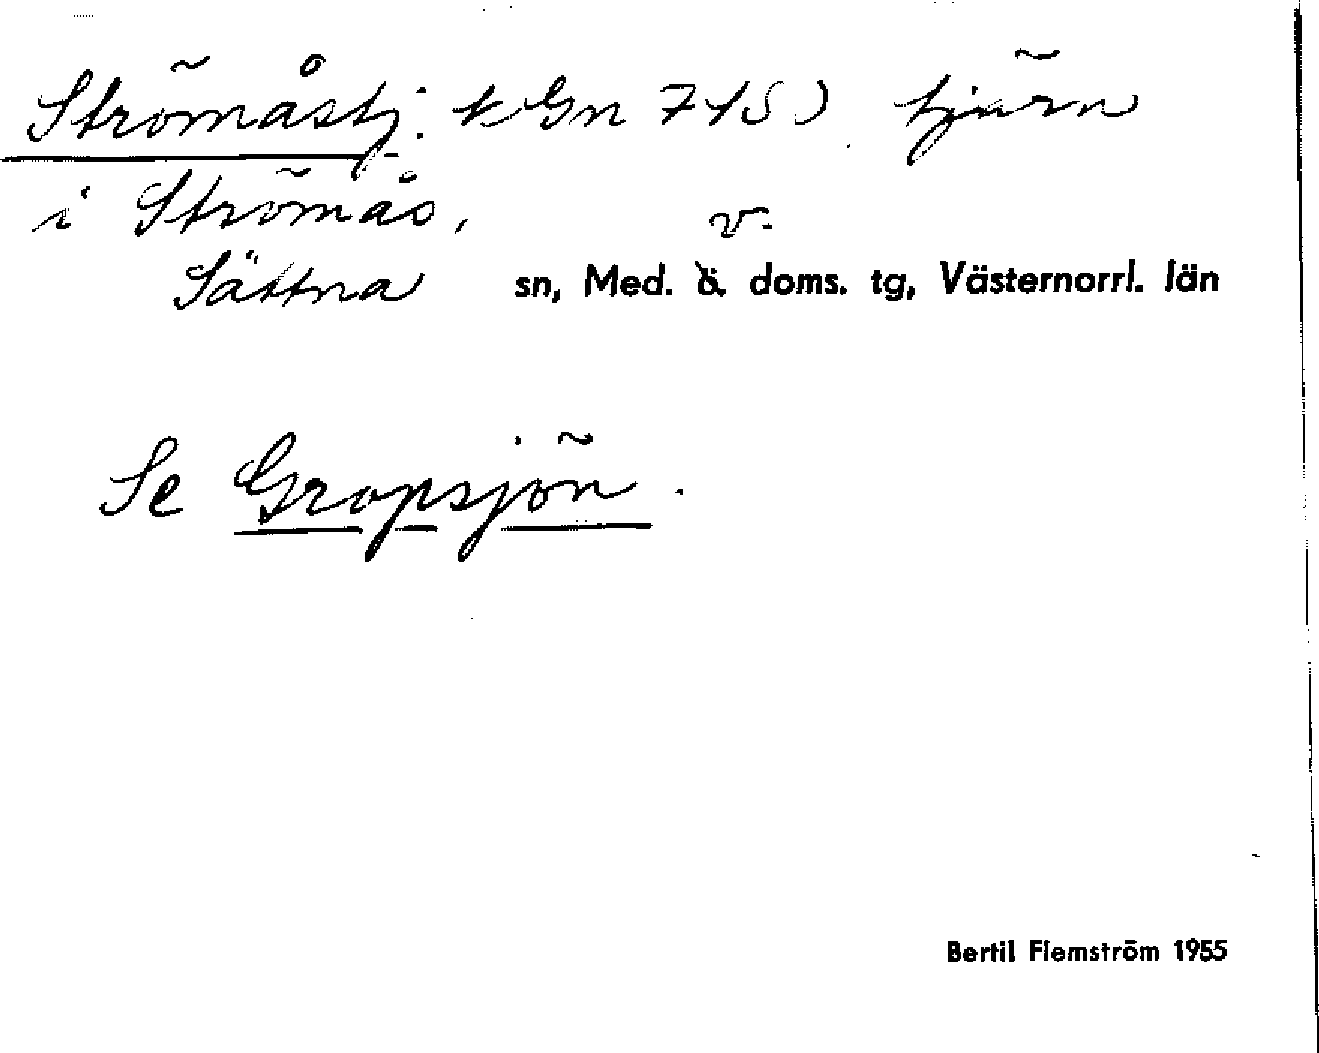 Strömåstj: kGn 715) tjärn
i Strömås,
v.
Sättna sn, Med. ö. doms. tg, Västernorrl. län
Se Gropsjön.
Bertil Flemström 1955